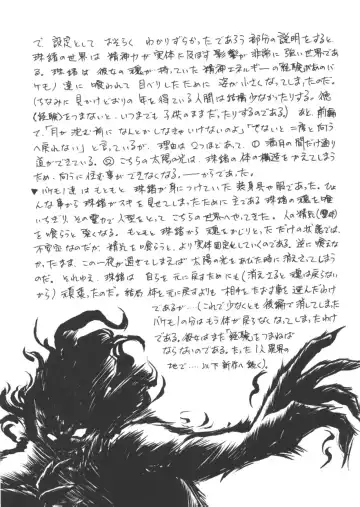 で 設定として おそらく わかりずらかったであろう部分の説明をすると、
珠緒の世界は 精神力が実体に及ぼす影響が非常に強い世界であ
る。珠緒は 彼女の魂が持っていた精神エネルギーの経験があの(バ
ケモノ)達に喰われて目べりしたために 姿が小さくなってしまったのだ。
(ちなみに見かけどおりの年を得ている人間は結構少なかったりする。他
(経験)をつまないと、いつまでも子供のままだったりするのである。) あと、前編
で、「月が沈む前になんとかしなきゃいけないのよ」「でないと二度と向う
へ戻れない」と言っているが、理由は2つほどあって、①満月の間だけ通り
道ができている。②こちらの太陽の光は、珠緒の体の構造を変えてしまう
ため、向うに住む事ができなくなる。――からであった。
♥バケモノ達は もともと珠緒が身につけていた装身具や服であった。ひょ
んな事から珠緒がスキを見せてしまったために 主である珠緒の魂を喰
いちぎり、その響力で人型をとって こちらの世界へやってきた。人の精気(霊力)
を喰らうと強くなる。もともと珠緒から魂をかじりとっただけの状態では、
不安定なのだが、精気を喰らうと、より実体固定していくのである。逆に喰えな
かったまま、この一夜が過ぎてしまえば 太陽の光をあびた時に消えてしまう
のだ。それゆえ、珠緒は 自らを元に戻すためにも(消えてると魂は戻らない
から) 頑張ったのだ。結局体を元に戻すよりも相手をたおす事を選んだわけ
であるが…(これで少なくとも後編で消してしまった
バケモノの分はもう体が戻らなくなってしまったわけ
である。彼女はまた「経験」をつまねば
ならないのである。たった1人異界の
地で……以下 新作へ続く)。